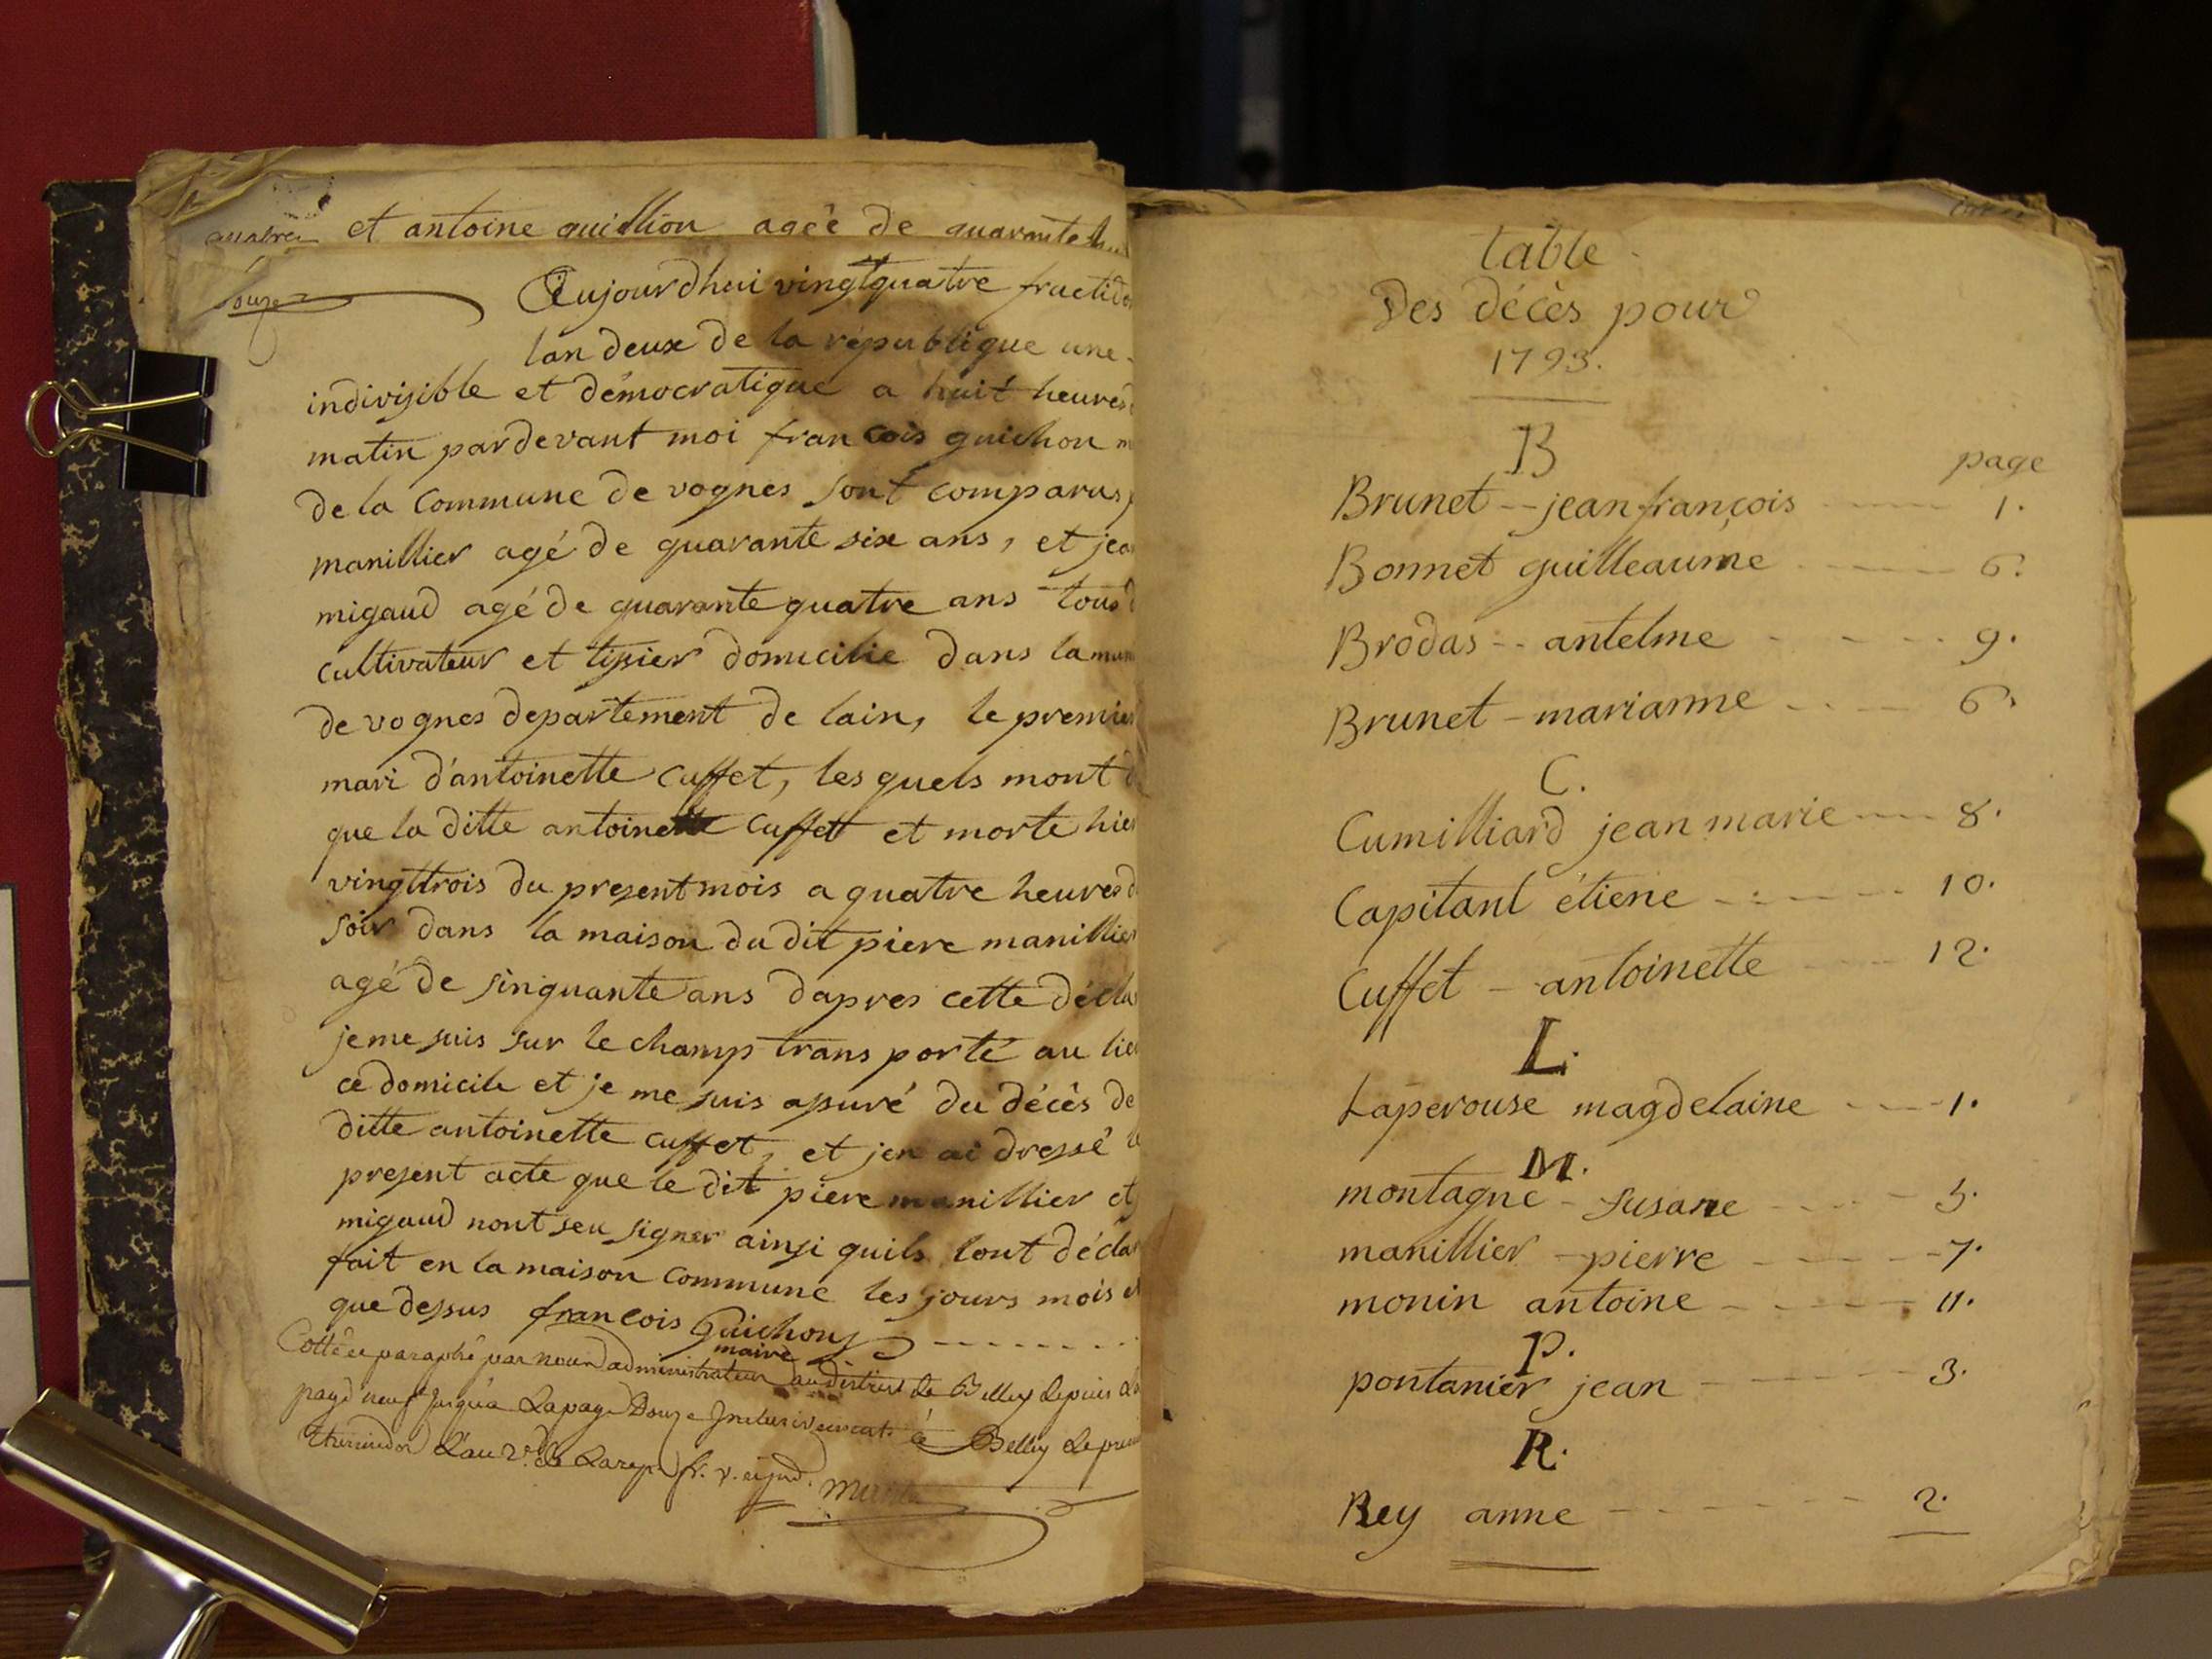 et antoine guichon ageé de quarante
douze
Aujourdhui vingtquatre fructid
lan deux de la republique une
indivisible et démocratique a huit heures
matin pardevant moi francois guichon m
de la Commune de vognes sont comparus
manillier agé de quarante six ans, et jea
migaud agé de quarante quatre ans tous
cultivateur et tisier domicilie dans la mun
de vognes departement de lain, le premier
mari d'antoinette Cuffet, les quels mont
que la ditte antoinette Cuffet et morte hier
vingttrois du present mois a quatre heures d
soir dans la maison du dit piere manillier
agé de sinquante ans dapres cette décla
je me suis sur le champ trans porté au lieu
ce domicile et je me suis asuré du décès de
ditte antoinette cuffet, et jen ai dressé le
present acte que le dit piere manillier et
migaud nont seu signer ainsi quils lont décla
fait en la maison Commune les jours mois et
que dessus francois Guichon
maire
Cotté et paraphé par nous administrateur du district de Belley depuis
page neuf jusqu'a la page Douze Inclusivement à Belley le
thermidor L'an 2e de la rep. fr. v.
table
Des décès pour
1793.
B
page
Brunet -- jean françois 1.
Bonnet guilleaume 6.
Brodas -- antelme 9.
Brunet - marianne 6.
C.
Cumilliard jean marie 8.
Capitant étiene 10.
Cuffet - antoinette 12.
L.
Laperouse magdelaine 1.
M.
montagne - susane 5.
manillier - pierre 7.
monin antoine 11.
P.
pontanier jean 3.
R.
Rey anne 2.